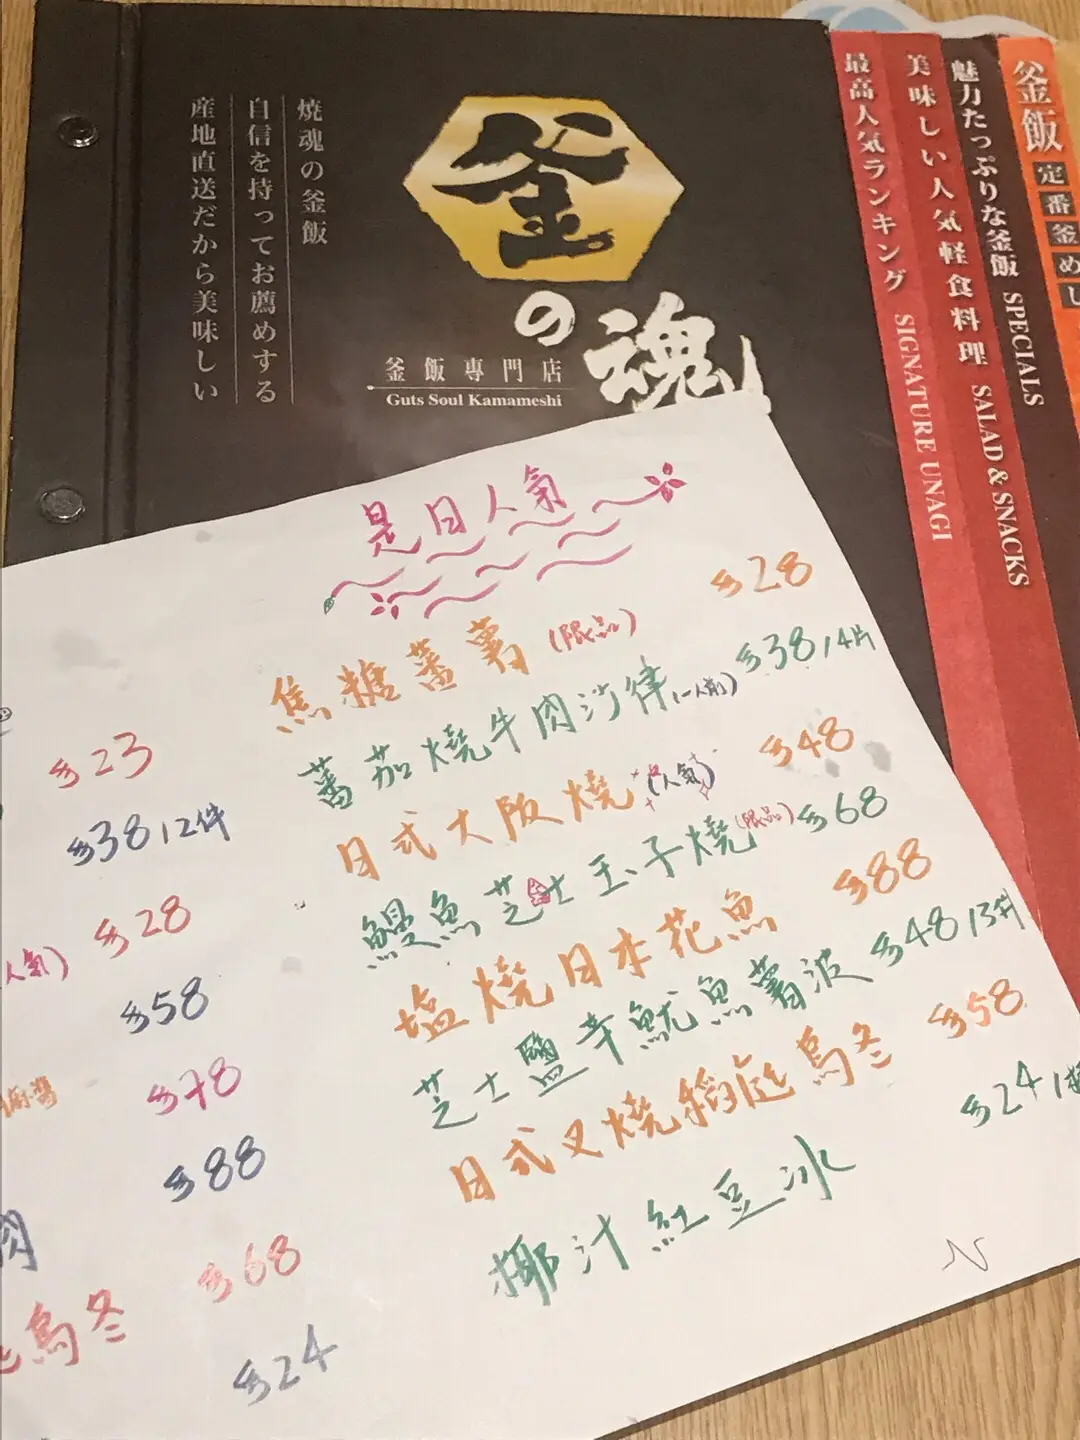 焼魂の釜飯
自信を持ってお薦めする
産地直送だから美味しい
釜
の魂
釜飯專門店
Guts Soul Kamameshi
最高人気ランキング SIGNATURE UNAGI
美味しい人気軽食料理 SALAD & SNACKS
魅力たっぷりな釜飯 SPECIALS
釜飯 定番釜めし
是日人氣
焦糖蕃薯(限品) $28
蕃茄燒牛肉沙律(一人前) $38/4片
日式大阪燒(人氣) $48
鰻魚芝士玉子燒(限品) $68
塩燒日本花魚 $88
芝士鹽辛魷魚薯波 $48/3件
日式叉燒稻庭烏冬 $58
椰汁紅豆冰 $24/
$23
$38/2件
$28
人氣) $58
$78
$88
肉 $68
烏冬 $24